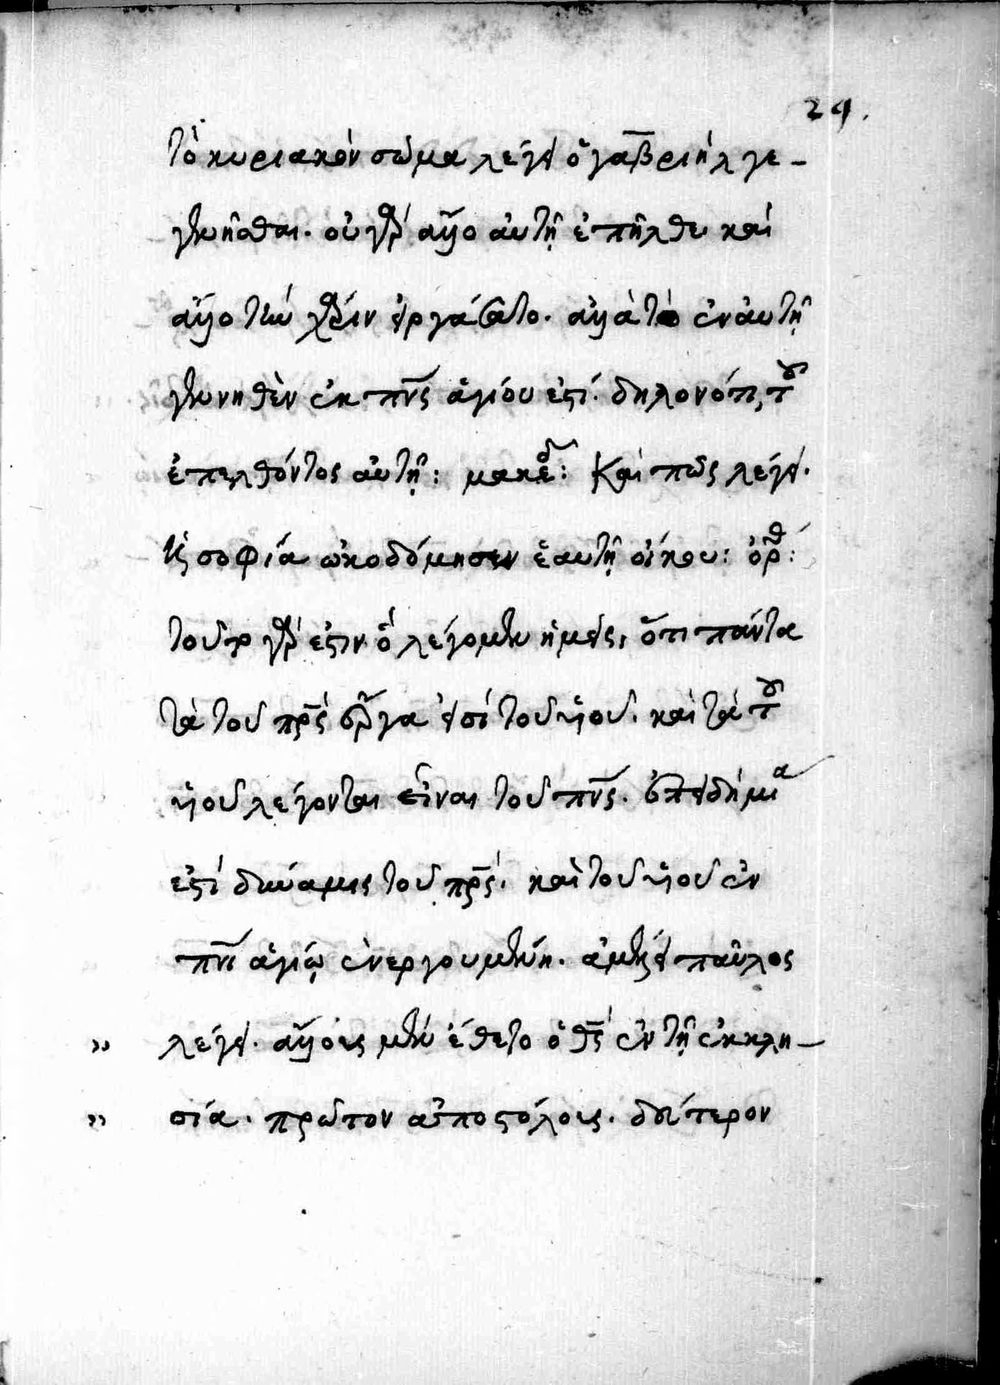 24.
τὸ κυριακὸν σῶμα λέγει ὁ γαβριὴλ γε-
γεννῆσθαι. οὐ γὰρ ἄλλο αὐτῇ ἐπῆλθεν καὶ
ἄλλο τὴν χρείαν εἰργάσατο. ἀλλὰ τὸ ἐν αὐτῇ
γεννηθὲν ἐκ πν̅ς ἁγίου ἐστί. δηλονότι, τοῦ
ἐπελθόντος αὐτῇ: μακεδ: Καὶ πῶς λέγει.
ἡ σοφία ὠκοδόμησεν ἑαυτῇ οἶκον: ὀρθ:
τοῦτο γάρ ἐστιν ὃ λέγομεν ἡμεῖς, ὅτι πάντα
τὰ τοῦ πρ̅ς ἔργα εἰσὶ τοῦ υἱοῦ. καὶ τὰ τοῦ
υἱοῦ λέγονται εἶναι τοῦ πν̅ς. ἐπειδὴ μία
ἐστὶ δύναμις τοῦ πρ̅ς. καὶ τοῦ υἱοῦ ἐν
πν̅ι ἁγίῳ ἐνεργουμένη. ἀμέλει παῦλος
» λέγει. ἄλλους μὲν ἔθετο ὁ θ̅ς ἐν τῇ ἐκκλη-
» σία. πρῶτον ἀποστόλους. δεύτερον